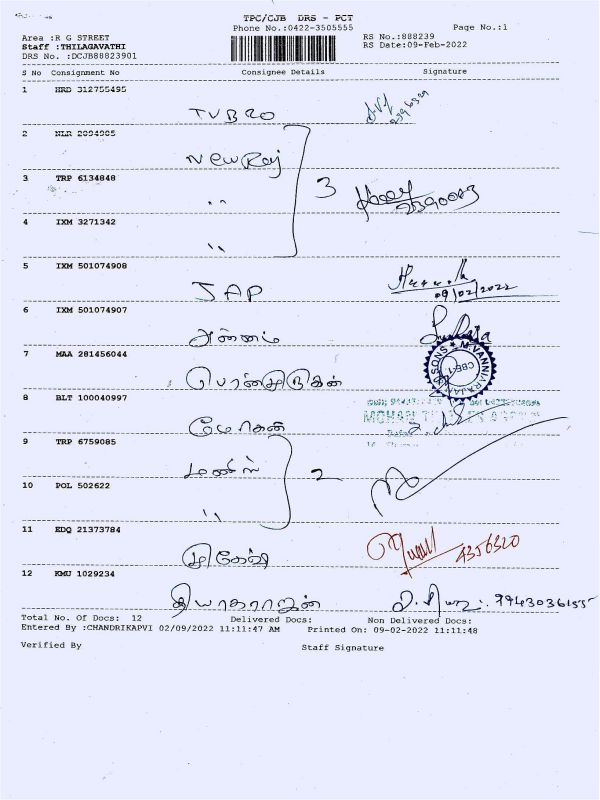 TPC/CJB DRS - PCT
Phone No.:0422-3505555
Page No.:1
Area :R G STREET
Staff :THILAGAVATHI
DRS No. :DCJB88823901
RS No.:888239
RS Date:09-Feb-2022
S No Consignment No Consignee Details Signature
1 HRD 312755495
TUBRO
2 NLR 2094905
New Raj
3 TRP 6134848
" 3
4 IXM 3271342
"
5 IXM 501074908
JAP
09/02/2022
6 IXM 501074907
அன்னம்
7 MAA 281456044
பொன்முருகன்
M.VANNIARAJAN & SONS
CBE-1
8 BLT 100040997
மோகன்
MOHAN
9 TRP 6759085
10 POL 502622
" 2
11 EDQ 21373784
முகேஷ்
4356320
12 KMU 1029234
தியாகராஜன்
9943036155
Total No. Of Docs: 12 Delivered Docs: Non Delivered Docs:
Entered By :CHANDRIKAPVI 02/09/2022 11:11:47 AM Printed On: 09-02-2022 11:11:48
Verified By Staff Signature